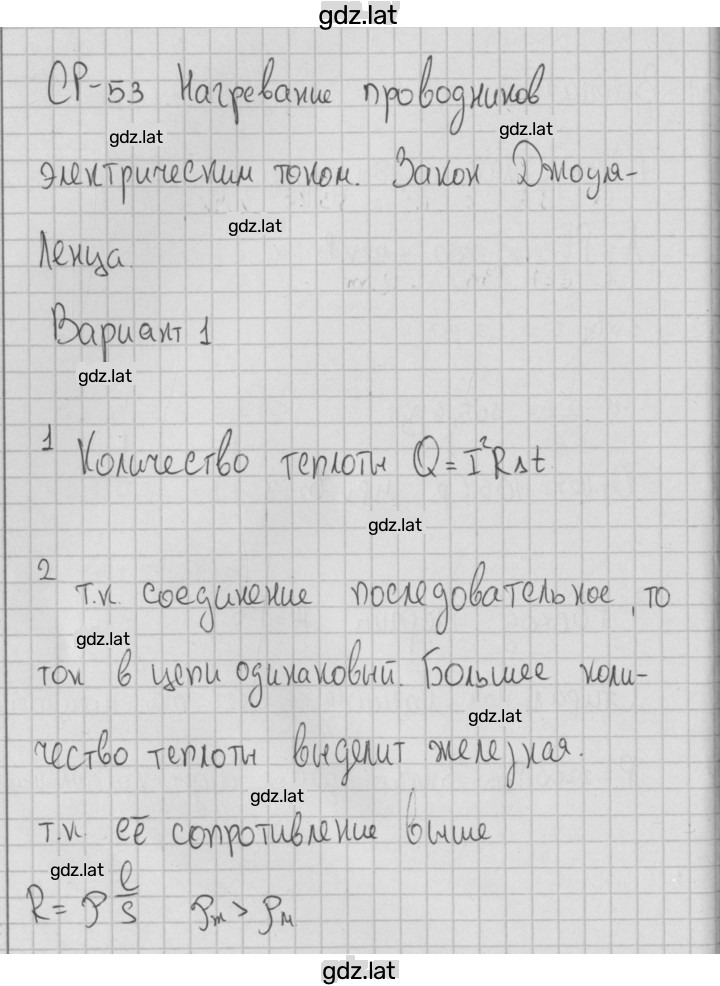 gdz.lat
СР-53 Нагревание проводников
gdz.lat gdz.lat
электрическим током. Закон Джоуля-
gdz.lat
Ленца.
Вариант 1
gdz.lat
1 Количество теплоты Q = I²RΔt
gdz.lat
2 т.к. соединение последовательное, то
gdz.lat
ток в цепи одинаковый. Большее коли-
gdz.lat
чество теплоты выделит железная.
gdz.lat
т.к. её сопротивление выше
gdz.lat
R = ρ l/S ρж > ρм
gdz.lat